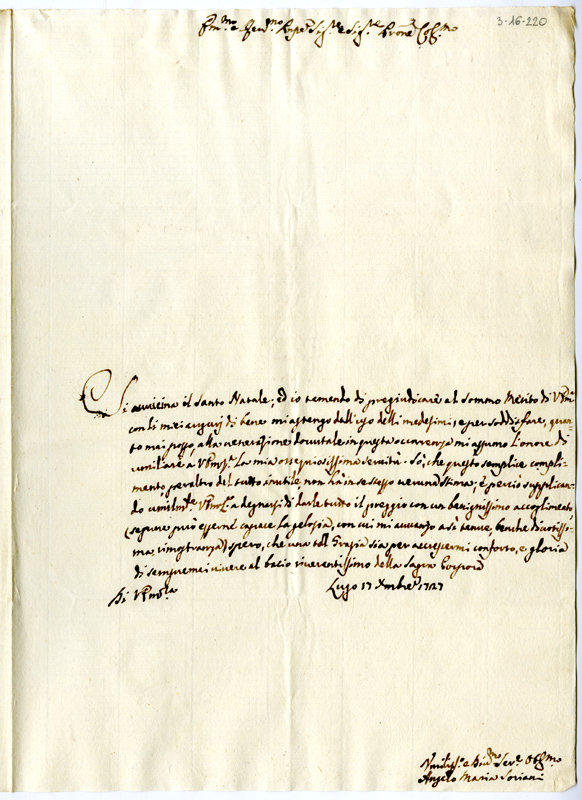 3-16-220
Em.mo e Rev.mo Sig.re e Sig.re Prone Col.mo
Si avvicina il Santo Natale; ed io temendo di pregiudicare al Sommo Merito di V Em.a
con li miei augurj di bene mi astengo dall'uso delli medesimi; e per soddisfare, quan-
to mai posso, alla venerazione dovutale in questa occorrenza mi assumo l'onore di
umiliare a V Em.a la mia ossequiosissima servitù. Sò, che questo semplice compli-
mento peraltro del tutto inutile non hà in se stesso veruna stima; e perciò supplican-
do umilm.te V Em.a a degnarsi di darle tutto il preggio con un benignissimo accoglimento
(seppure può esserne capace la gelosia, con cui mi avvanzo a sì tenue, benche divotissi-
ma, rimostranza) spero, che una tal Grazia sia per accrescermi conforto, e gloria
di sempre mai vivere al bacio riverentissimo della Sagra Porpora
Di V Em.za Lugo 17 Xmbre 1727
Umiliss.o e Div.mo Ser.e Obl.mo
Angelo Maria Soriani